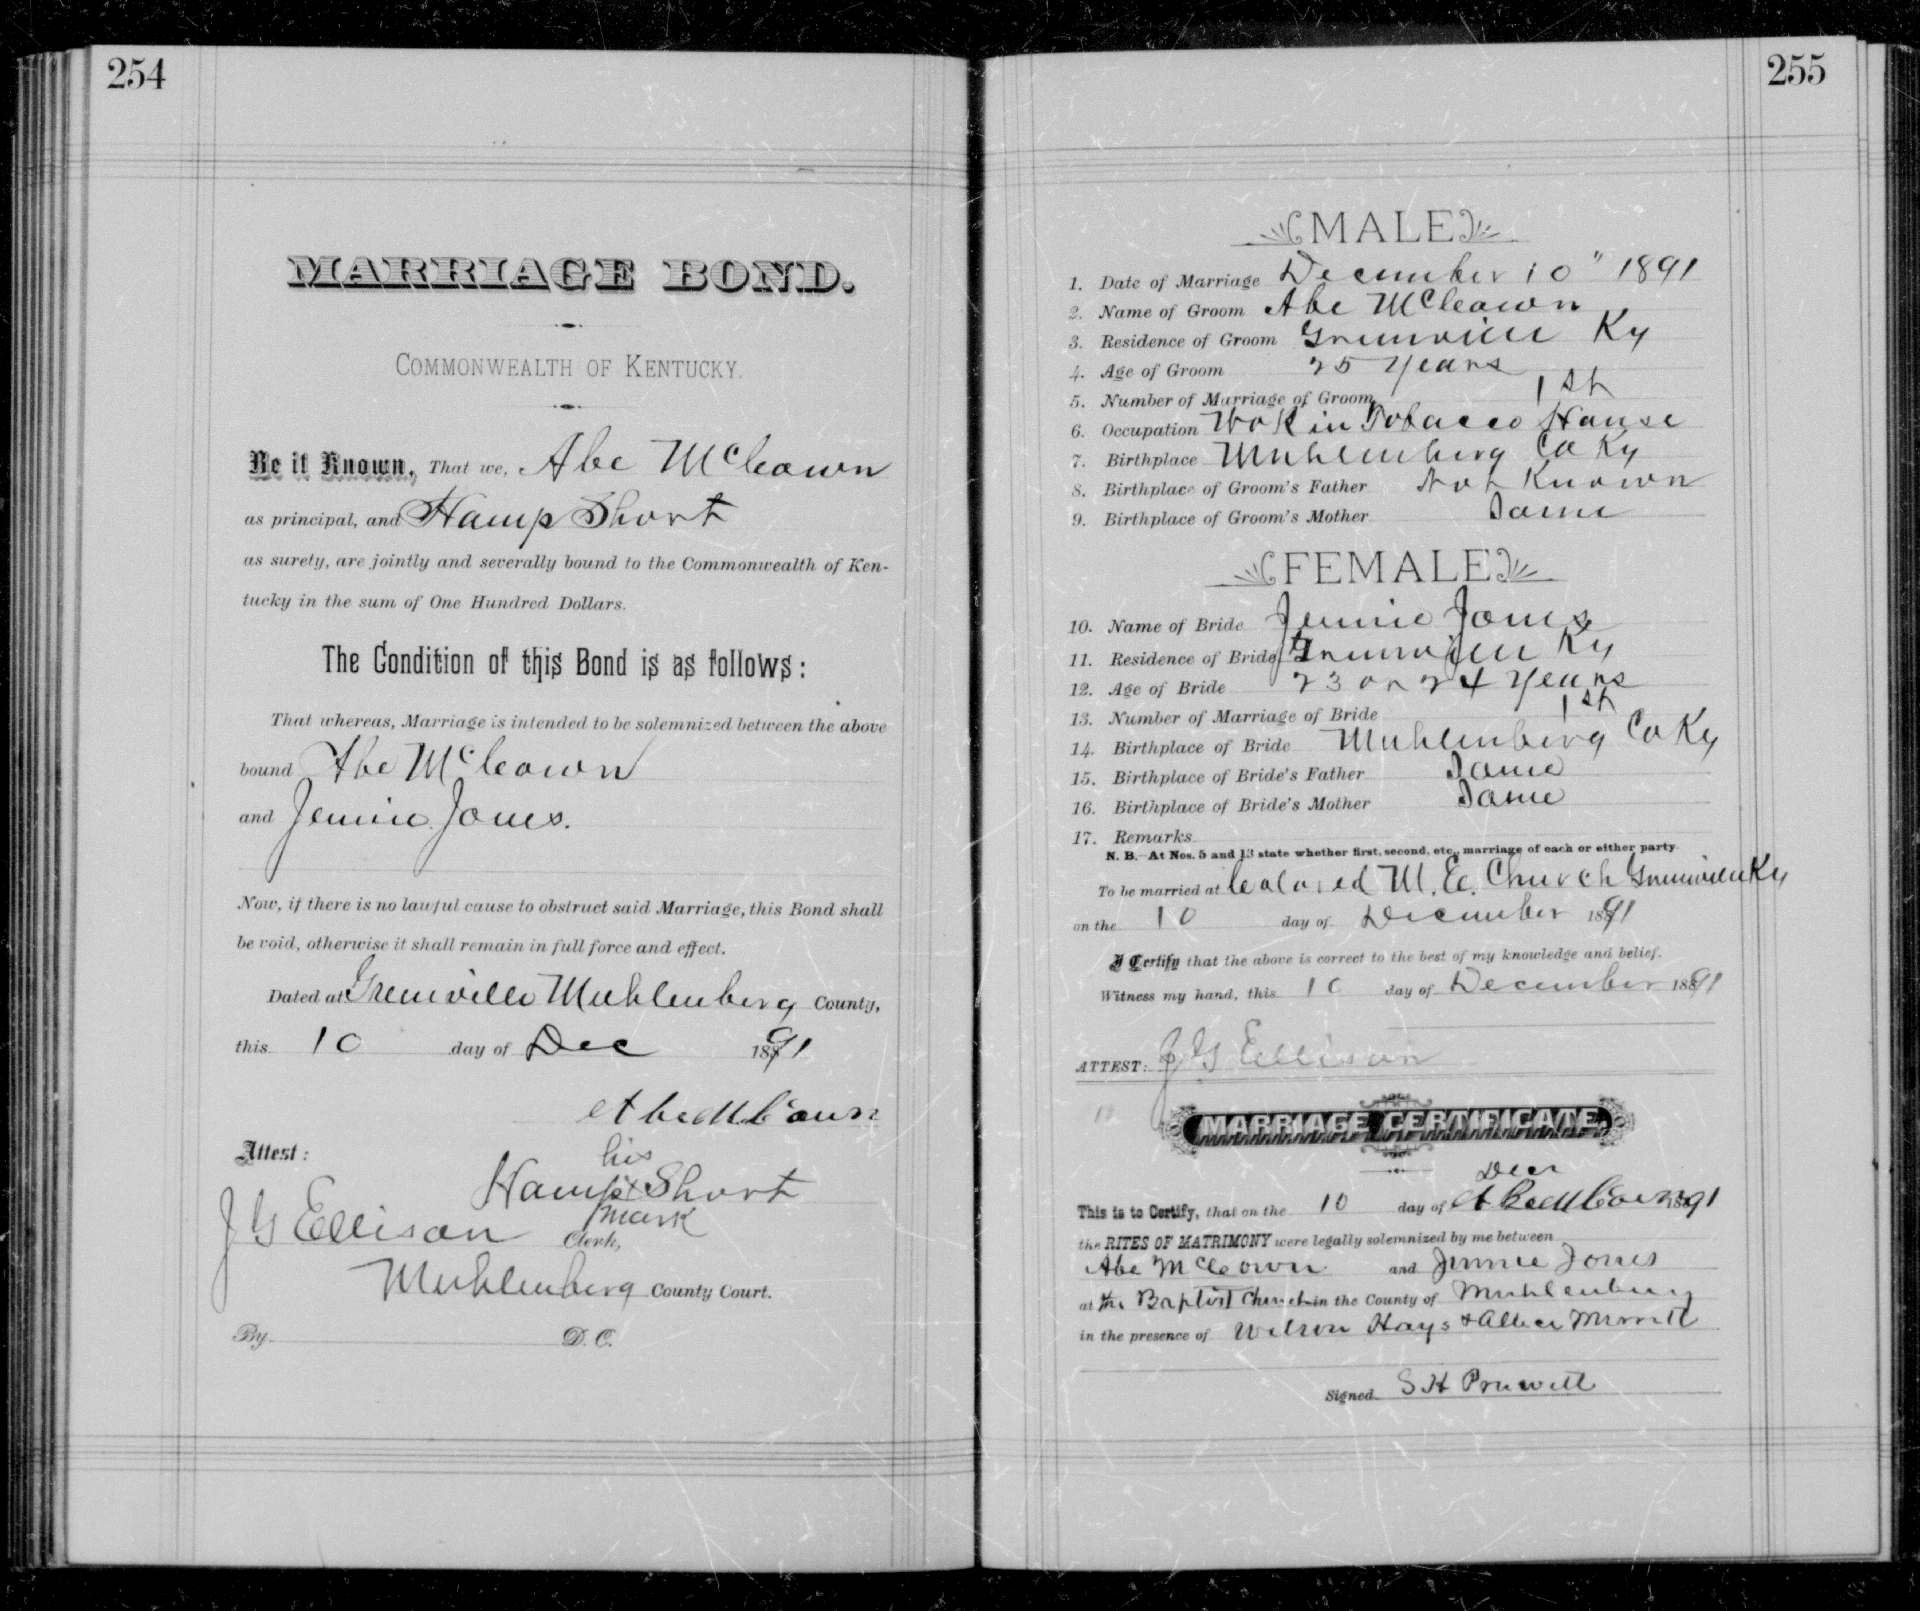 254
MARRIAGE BOND.
COMMONWEALTH OF KENTUCKY.
Be it Known, That we, Abe McCown
as principal, and Hamp Short
as surety, are jointly and severally bound to the Commonwealth of Ken-
tucky in the sum of One Hundred Dollars.
The Condition of this Bond is as follows:
That whereas, Marriage is intended to be solemnized between the above
bound Abe McCown
and Jennie Jones.
Now, if there is no lawful cause to obstruct said Marriage, this Bond shall
be void, otherwise it shall remain in full force and effect.
Dated at Greenville Muhlenberg County,
this 10 day of Dec 1891
Abe McCown
his
Attest: Hamp x Short
mark
J G Ellison Clerk,
Muhlenberg County Court.
By D. C.
255
MALE
1. Date of Marriage December 10" 1891
2. Name of Groom Abe McCown
3. Residence of Groom Greenville Ky
4. Age of Groom 25 years
5. Number of Marriage of Groom 1st
6. Occupation Wok in Tobacco House
7. Birthplace Muhlenberg Co Ky
8. Birthplace of Groom's Father Not Known
9. Birthplace of Groom's Mother Same
FEMALE
10. Name of Bride Jennie Jones
11. Residence of Bride Greenville Ky
12. Age of Bride 23 or 24 years
13. Number of Marriage of Bride 1st
14. Birthplace of Bride Muhlenberg Co Ky
15. Birthplace of Bride's Father Same
16. Birthplace of Bride's Mother Same
17. Remarks
N. B.—At Nos. 5 and 13 state whether first, second, etc., marriage of each or either party.
To be married at Colored M. E. Church Greenville Ky
on the 10 day of December 1891
I Certify that the above is correct to the best of my knowledge and belief.
Witness my hand, this 10 day of December 1891
ATTEST: J G Ellison
MARRIAGE CERTIFICATE
Decr
This is to Certify, that on the 10 day of Abe McCown 1891
the RITES OF MATRIMONY were legally solemnized by me between
Abe McCown and Jennie Jones
at the Baptist Church in the County of Muhlenburg
in the presence of Wilson Hays &
Signed S H Pruwitt